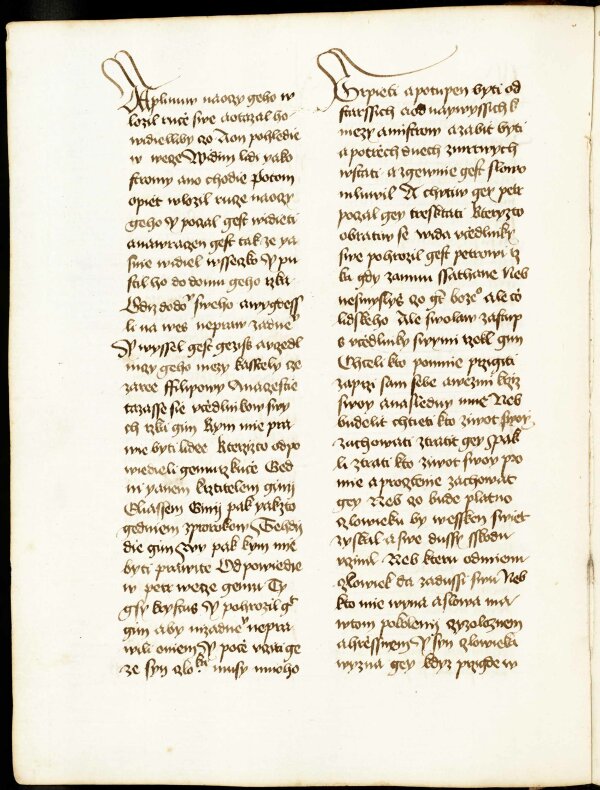 A plinuw naoczy geho w
lozil rucie swe aotazal ho
widielliby czo A on pohledie
w wecze Widim lidi yako
stromy ano chodie Potom
opiet wlozil rucze naoczy
geho Y poczal gest widieti
anawraczen gest tak ze ya
snie widiel wsseczko Y pu
stil ho do domu geho rzka
Odi doˀ sweho awygdess
li na wes neprav zadneˀ
Y wyssel gest gezis avczedl
niczy geho mezy kasstely ce
zaree ffilipowy Anaczestie
tazasse sie vczedlnikow swy
ch rzka gim Kym mie pra
wie byti lidee Kterzizto odpo
wiedieli gemu rzkuce Ged
ni yanem krztitelem ginij
Eliassem Ginij pak yakzto
gedniem zprorokow Tehdy
die gim Wy pak kym mie
byti prawite Odpowiedie
w petr wecze gemu Ty
gsy krystus Y pohrozil gᵗ
gim aby nizadneˀ nepra
wili oniem Y pocze vcziti ge
ze syn czloᵏᵃ musy mnoho
Trpieti a potupen byti od
starssich aod naywyssich k
niezy amistrow azabit byti
apotrech dnech zmrtwych
wstati azgewnie gest slowo
mluwil A chytiw gey petr
poczal gey tresktati Kteryzto
obratiw se wida vczedlniky
swe pohrozil gest petrowi rz
ka gdy zamnu ssathane Neb
nesmyslyss czo gᵗ bozeˀ ale czo
lidskeho Ale swolaw zastup
s vczedlniky swymi rzekl gim
Chceli kto pomnie przigiti
zaprzi sam sebe awezmi krziz
swoy anasleduy mne Neb
budelit chtieti kto ziwot swoy
zachowati ztratit gey Pak
li ztrati kto ziwot swoy pro
mne aprocztenie zachowat
gey Neb czo bude platno
czlowieku by wessken swiet
zyskal a swe dussy sskodu
vczinil Neb kteru odmienu
czlowiek da zadussi swu Neb
kto mie wyzna aslowa ma
wtom pokolenij czyzoloznem
ahrziessnem Y syn czlowieka
wyzna gey kdyz przigde w